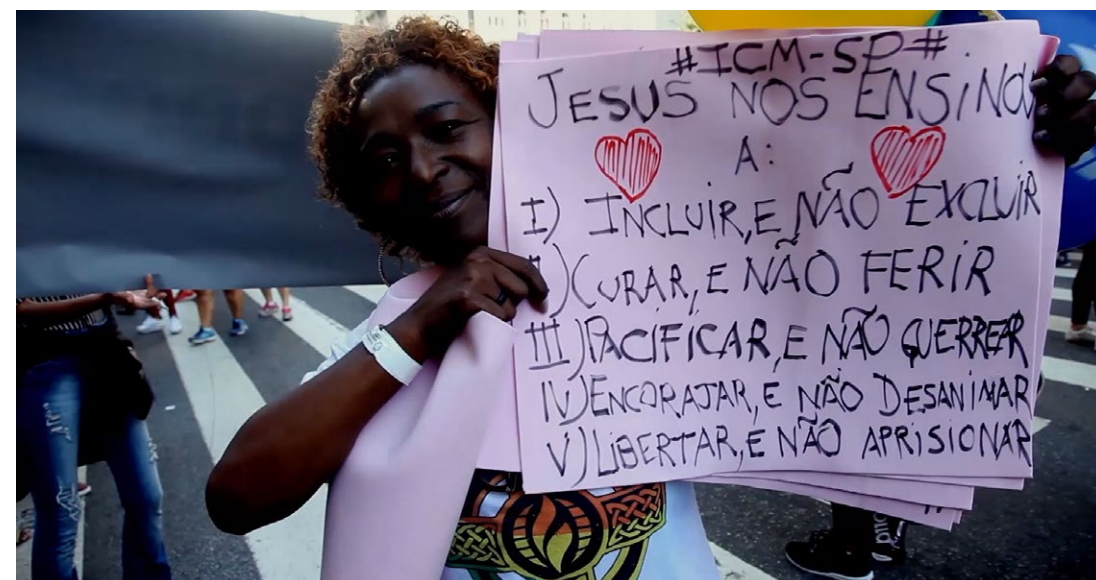 #ICM-SP#
JESUS NOS ENSINOU
A:
I) INCLUIR, E NÃO EXCLUIR
II) CURAR, E NÃO FERIR
III) PACIFICAR, E NÃO GUERREAR
IV) ENCORAJAR, E NÃO DESANIMAR
V) LIBERTAR, E NÃO APRISIONAR